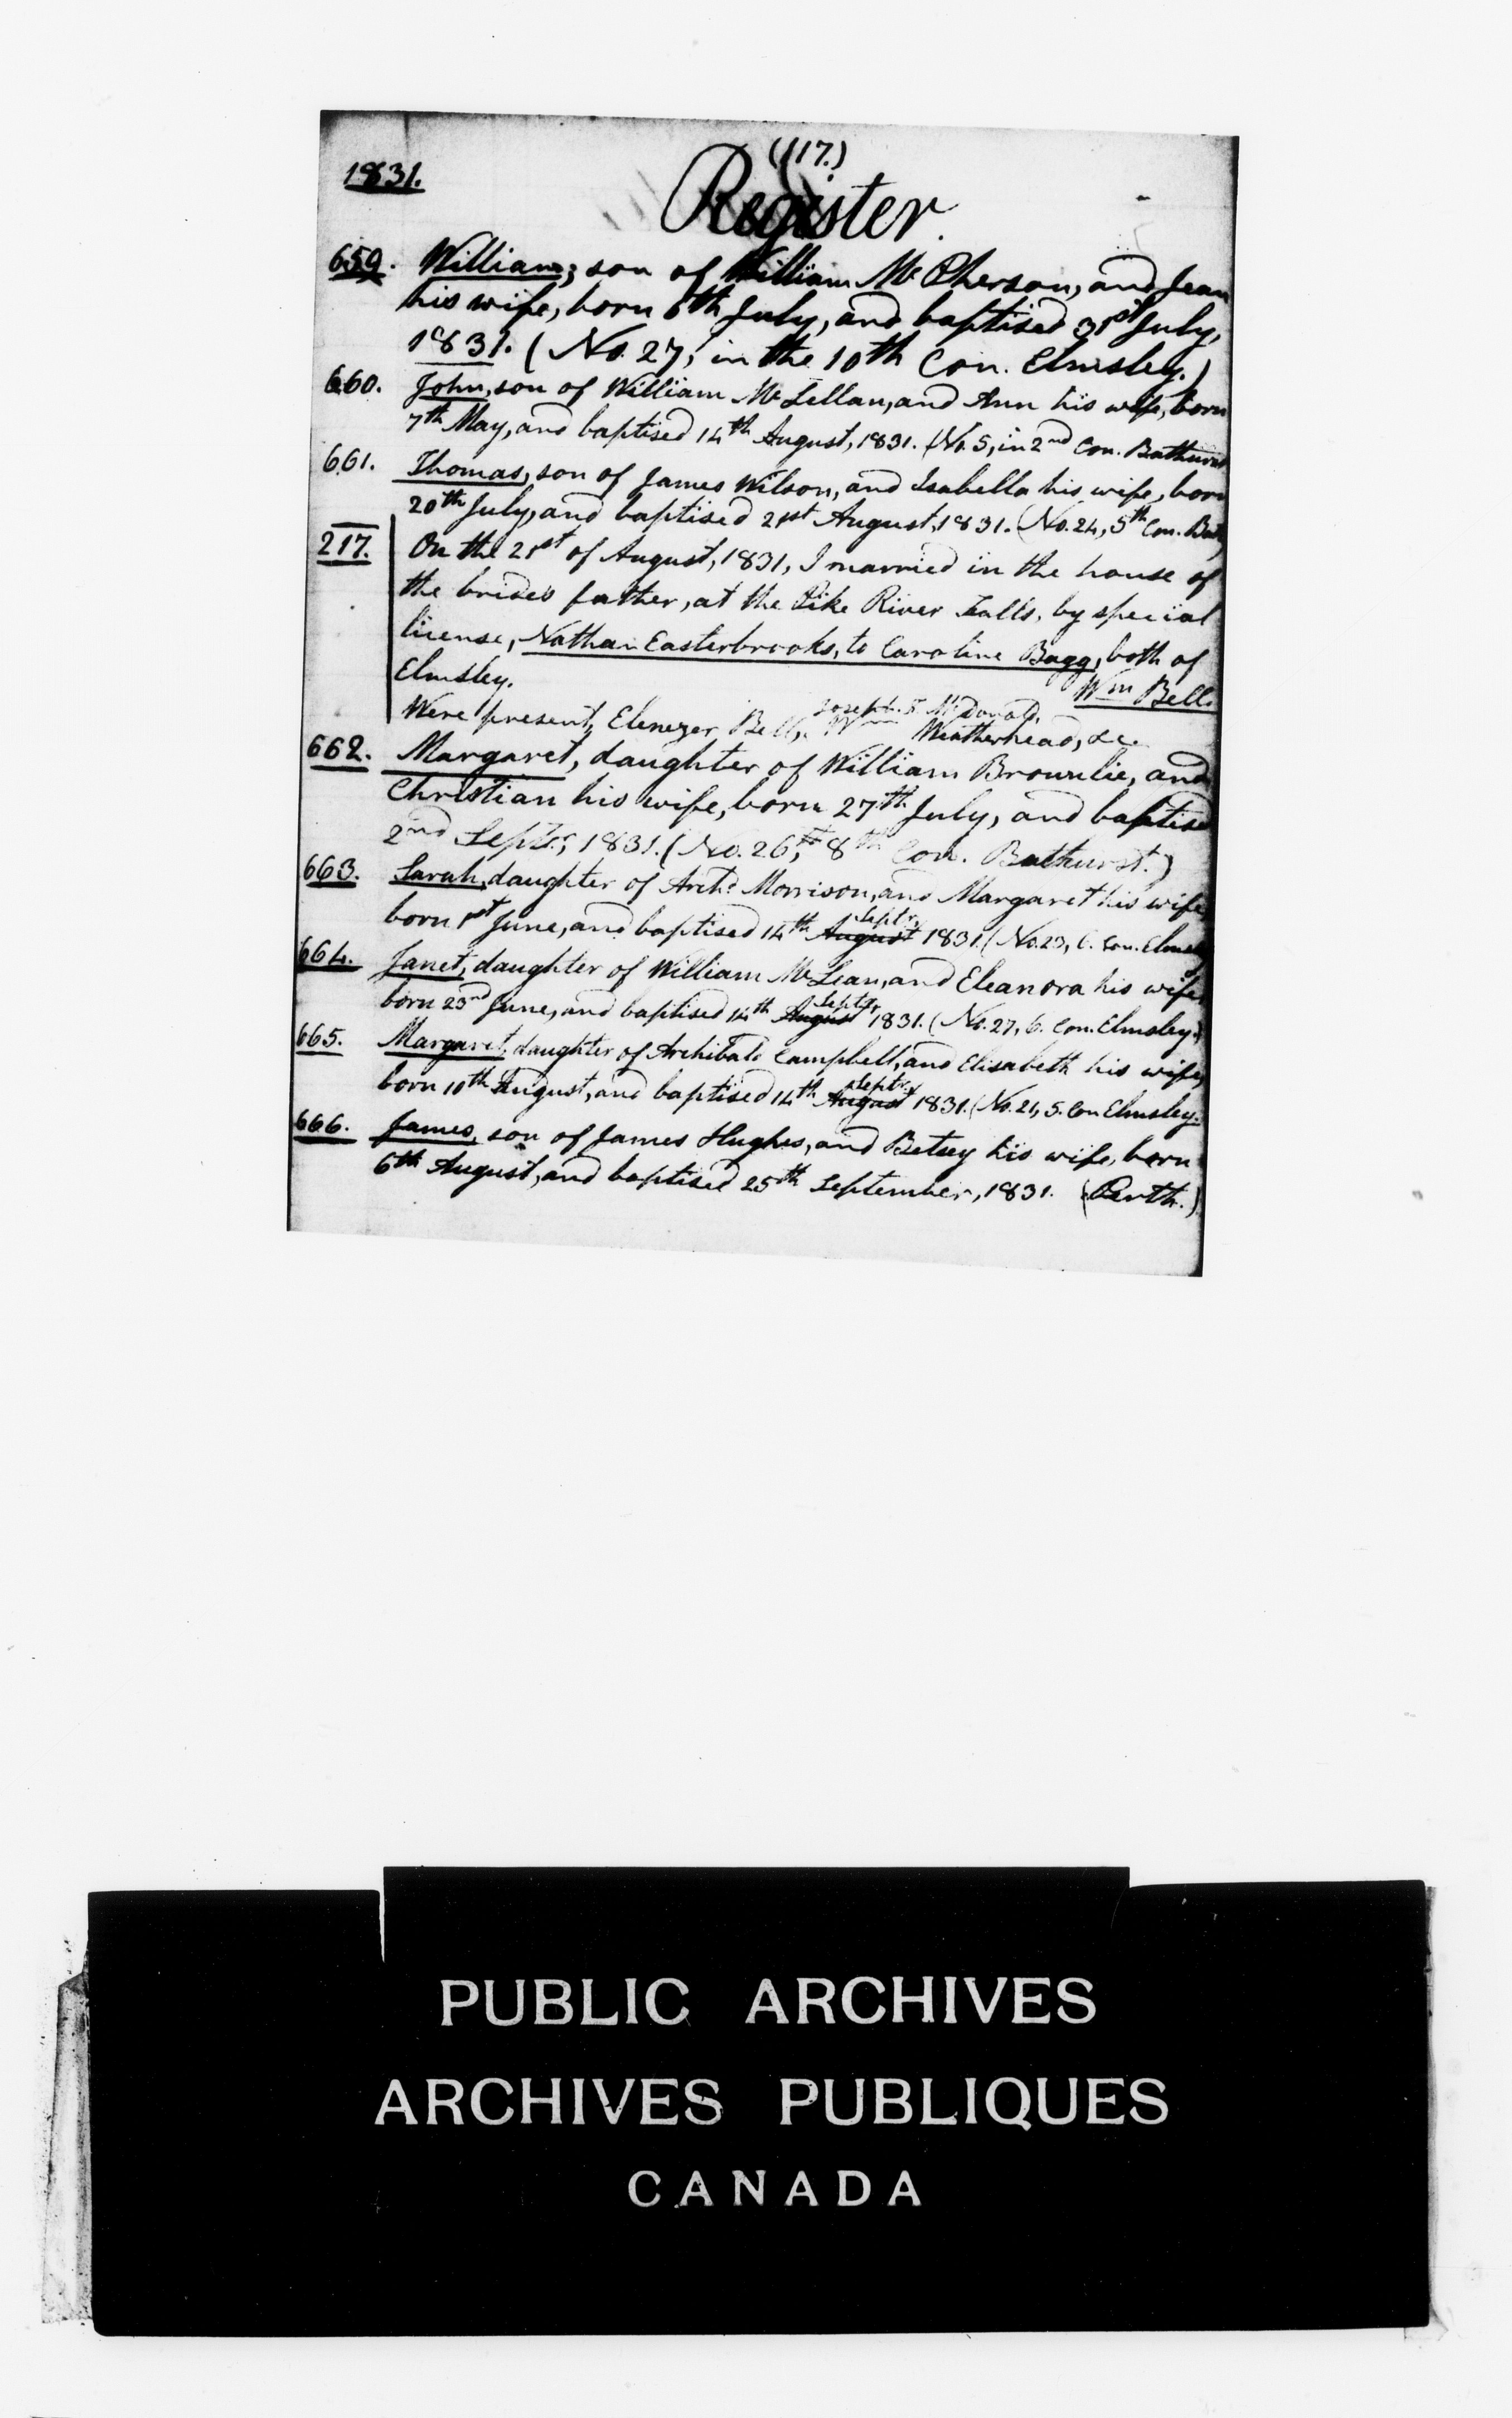 (117.)
1831.
Register.
659. William, son of William McPherson, and Jean
his wife, born 6th July, and baptised 31st July,
1831. (No. 27, in the 10th Con. Elmsley.)
660. John, son of William McLellan, and Ann his wife, born
7th May, and baptised 14th August, 1831. (No. 5, in 2nd Con. Bathurst
661. Thomas, son of James Wilson, and Isabella his wife, born
20th July, and baptised 21st August, 1831. (No. 24, 5th Con. Bat
217. On the 21st of August, 1831, I married in the house of
the brides father, at the Pike River Falls, by special
license, Nathan Easterbrooks, to Caroline Bagg, both of
Elmsley. Wm Bell.
Joseph McDonald,
Were present, Ebenezer Bell, Wm Weatherhead, &c.
662. Margaret, daughter of William Brownlie, and
Christian his wife, born 27th July, and baptised
2nd Septr, 1831. (No. 26, 8th Con. Bathurst.)
663. Sarah, daughter of Archd Morrison, and Margaret his wife
born 1st June, and baptised 14th August Septr, 1831. (No. 23, 6. Con. Elmsley
664. Janet, daughter of William McLean, and Eleanora his wife
born 23nd June, and baptised 14th August Septr 1831. (No. 27, 6. Con. Elmsley.)
665. Margaret, daughter of Archibald Campbell, and Elisabeth his wife
born 10th August, and baptised 14th August Septr, 1831. (No. 21, 5. Con Elmsley.
666. James, son of James Hughes, and Betsey his wife, born
6th August, and baptised 25th September, 1831. (Perth.)
PUBLIC ARCHIVES
ARCHIVES PUBLIQUES
CANADA